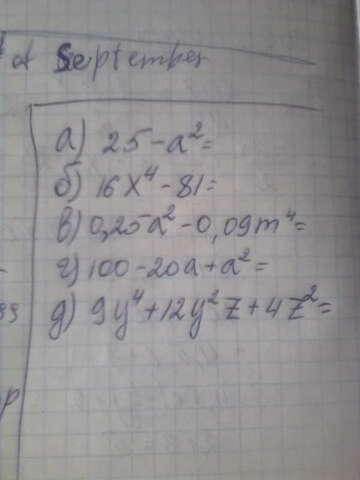 of September
а) 25-a²=
б) 16x⁴-81=
в) 0,25a²-0,09m⁴=
г) 100-20a+a²=
д) 9y⁴+12y²z+4z²=